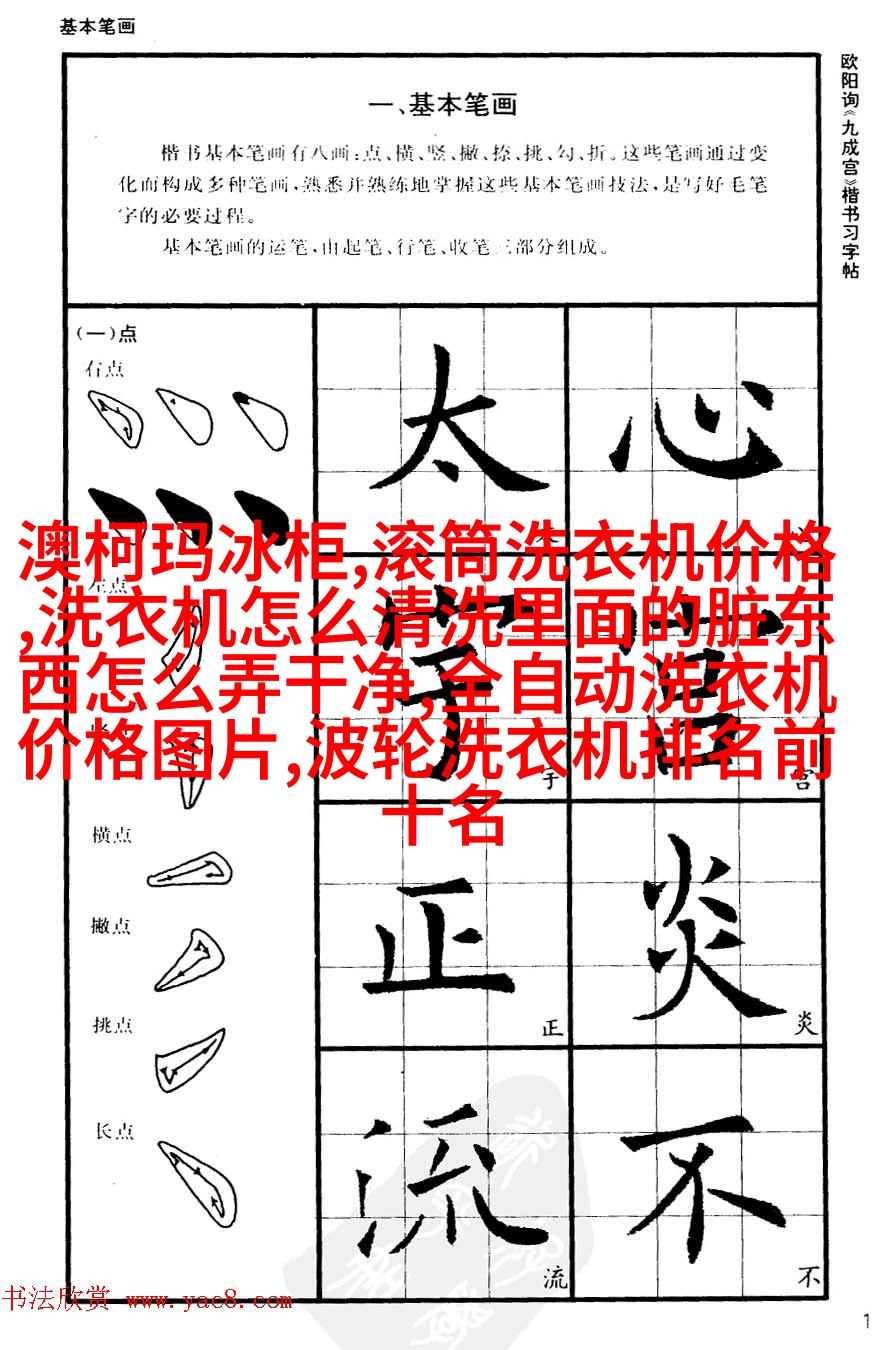 基本笔画
欧阳询《九成宫》楷书习字帖
一、基本笔画
楷书基本笔画有八画：点、横、竖、撇、捺、挑、勾、折。这些笔画通过变
化而构成多种笔画，熟悉并熟练地掌握这些基本笔画技法，是写好毛笔
字的必要过程。
基本笔画的运笔，由起笔、行笔、收笔三部分组成。
(一)点
右点
太 心
澳柯玛冰柜,滚筒洗衣机价格
,洗衣机怎么清洗里面的脏东
西怎么弄干净,全自动洗衣机
价格图片,波轮洗衣机排名前
十名
左点
字 宫
字 宫
横点
撇点
正 炎
正 炎
挑点
长点
流 不
流 不
书法欣赏 www.yac8.com
1